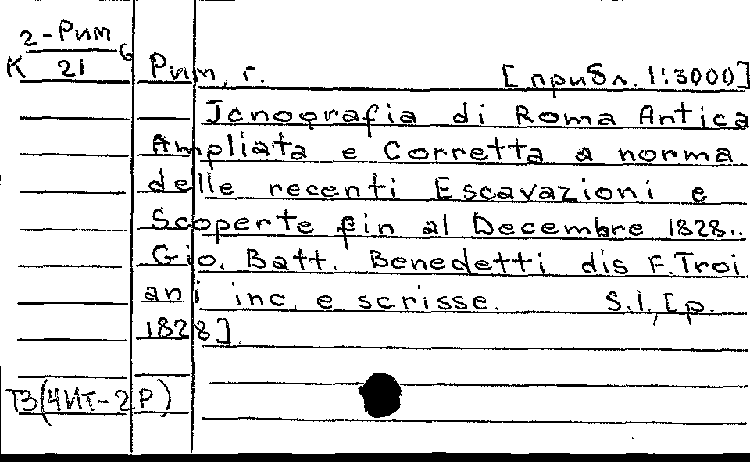 2-Рим
К 21 6
Рим, г. [прибл. 1:3000]
Jcnografia di Roma Antica
Ampliata e Corretta a norma
delle recenti Escavazioni e
Scoperte fin al Decembre 1828.
Gio. Batt. Benedetti dis F. Troi
ani inc. e scrisse. S.l., [p.
1828].
Т3(4ИТ-2Р)